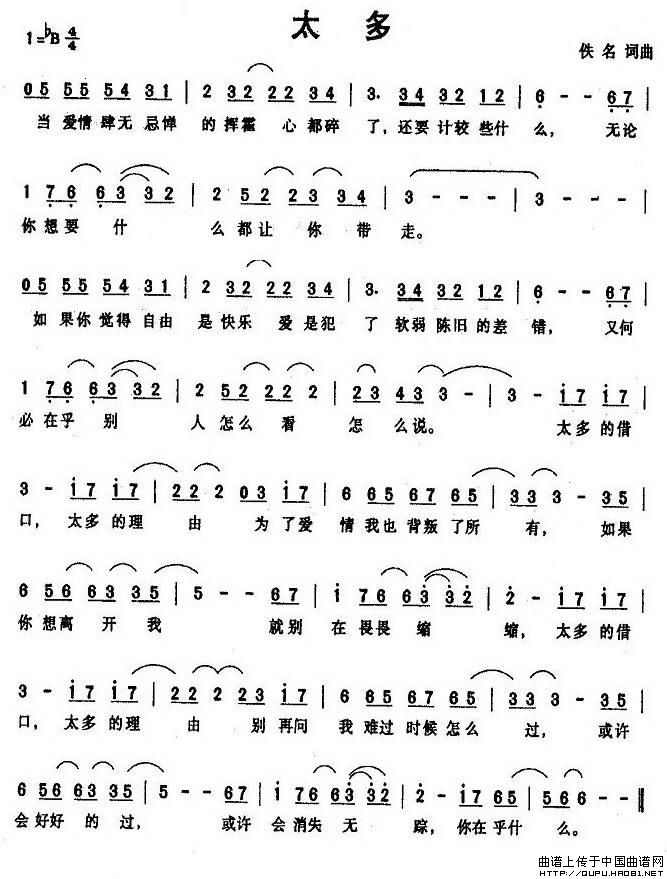 太多
1=♭B 4/4
佚名 词曲
05 55 54 31 | 2 32 22 34 | 3. 34 32 12 | 6 - - 67 |
当 爱情肆无 忌惮 的挥霍 心都碎 了,还要 计较 些什 么, 无论
1 76 63 32 | 2 52 23 34 | 3 - - - | 3 - - - |
你想要 什 么都让 你 带 走。
05 55 54 31 | 2 32 22 34 | 3. 34 32 12 | 6 - - 67 |
如 果你觉得 自由 是快乐 爱是犯 了 软弱 陈旧的差 错, 又何
1 76 63 32 | 2 52 22 2 | 23 43 3 - | 3 - i7 i7 |
必在乎 别 人怎么 看 怎 么说。 太多 的借
3 - i7 i7 | 22 2 03 i7 | 6 65 67 65 | 33 3 - 35 |
口, 太多 的理 由 为 了爱 情我也 背叛 了所 有, 如果
6 56 63 35 | 5 - - 67 | i 76 63 32 | 2 - i7 i7 |
你想离 开 我 就别 在畏畏 缩 缩, 太多的借
3 - i7 i7 | 22 2 23 i7 | 6 65 67 65 | 33 3 - 35 |
口, 太多 的理 由 别 再问 我 难过 时候 怎么 过, 或许
6 56 63 35 | 5 - - 67 | i 76 63 32 | 2 - i7 65 | 566 - - ‖
会好好 的 过, 或许 会消失 无 踪, 你在乎什 么。
曲谱上传于中国曲谱网
HTTP://QUPU.HAO81.NET